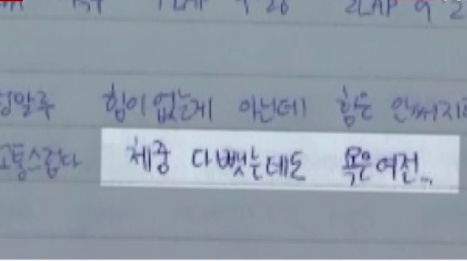 1LAP 9'26 2LAP 9'2
정말루 힘이 없는게 아닌데 힘은 안써지
고통스럽다 체중 다뺏는데도 몸은여전...